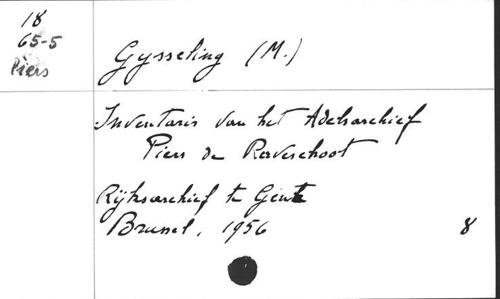 18
65-5
Piers
Gysseling (M.)
Inventaris van het Adelsarchief
Piers de Raveschoot
Rijksarchief te Gent
Brussel, 1956 8